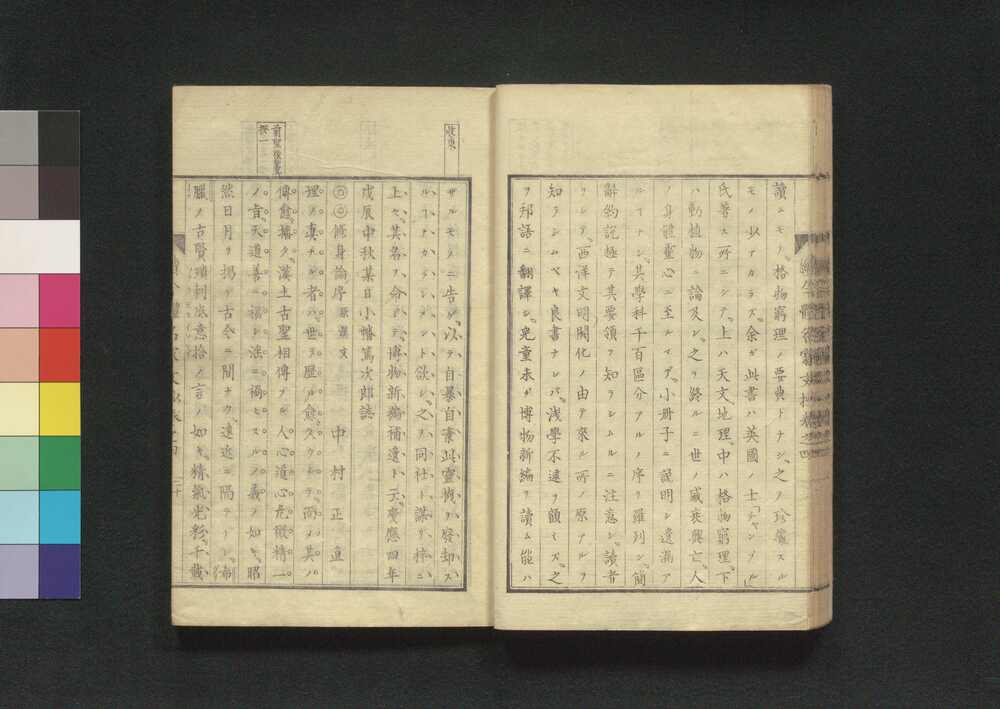 讀ニモノ、格物窮理ノ要典トナシ、之ノ珍重スル
モノ以アカラズ、余ガ此書ハ英國ノ士「シャンブル」
氏著ス所ニシテ、上ハ天文地理、中ハ格物窮理、下
ハ動植物ニ論及シ、之ヲ畧ルニ世ノ盛衰興亡、人
ノ身體靈心ニ至ルマデ、小册子ニ説明シ遺漏ア
ルコトナシ、其學科千百區分アルノ序ヲ羅列シ、簡
辭約記極テ其要領ヲ知ラシムルニ注意シ、讀者
ヲシテ、西洋文明開化ノ由テ來ル所ノ原アルヲ
知ラシムベキ良書ナレバ、淺學不逮ヲ顧ミズ、之
ヲ邦語ニ翻譯シ、兒童未ダ博物新編ヲ讀ム能ハ
收束
ザルモノニ告グ、以テ自暴自棄此靈機ヲ廢却ス
ルコトナカラシメント欲シ、之ヲ同社ト謀テ、梓ニ
上セ、其名ヲ命ジテ、博物新編補遺ト云、慶應四年
戊辰中秋某日小幡篤次郎誌
修身論序 原漢文 中村正直
理ノ眞ナル者ハ、世ヲ歴ル愈久クシテ、而メ其ノ
傳愈播ク、漢土古聖相傳フル、人心道心危微精一
ノ旨、天道善ニ福シ淫ニ禍ヒスルノ義ノ如キ、昭
然日月ヲ掲ゲ古今ニ間ナク、遠近ニ隔テナシ、希
臘ノ古賢瑣柯底意拾ノ言ノ如キ、精氣光彩、千載